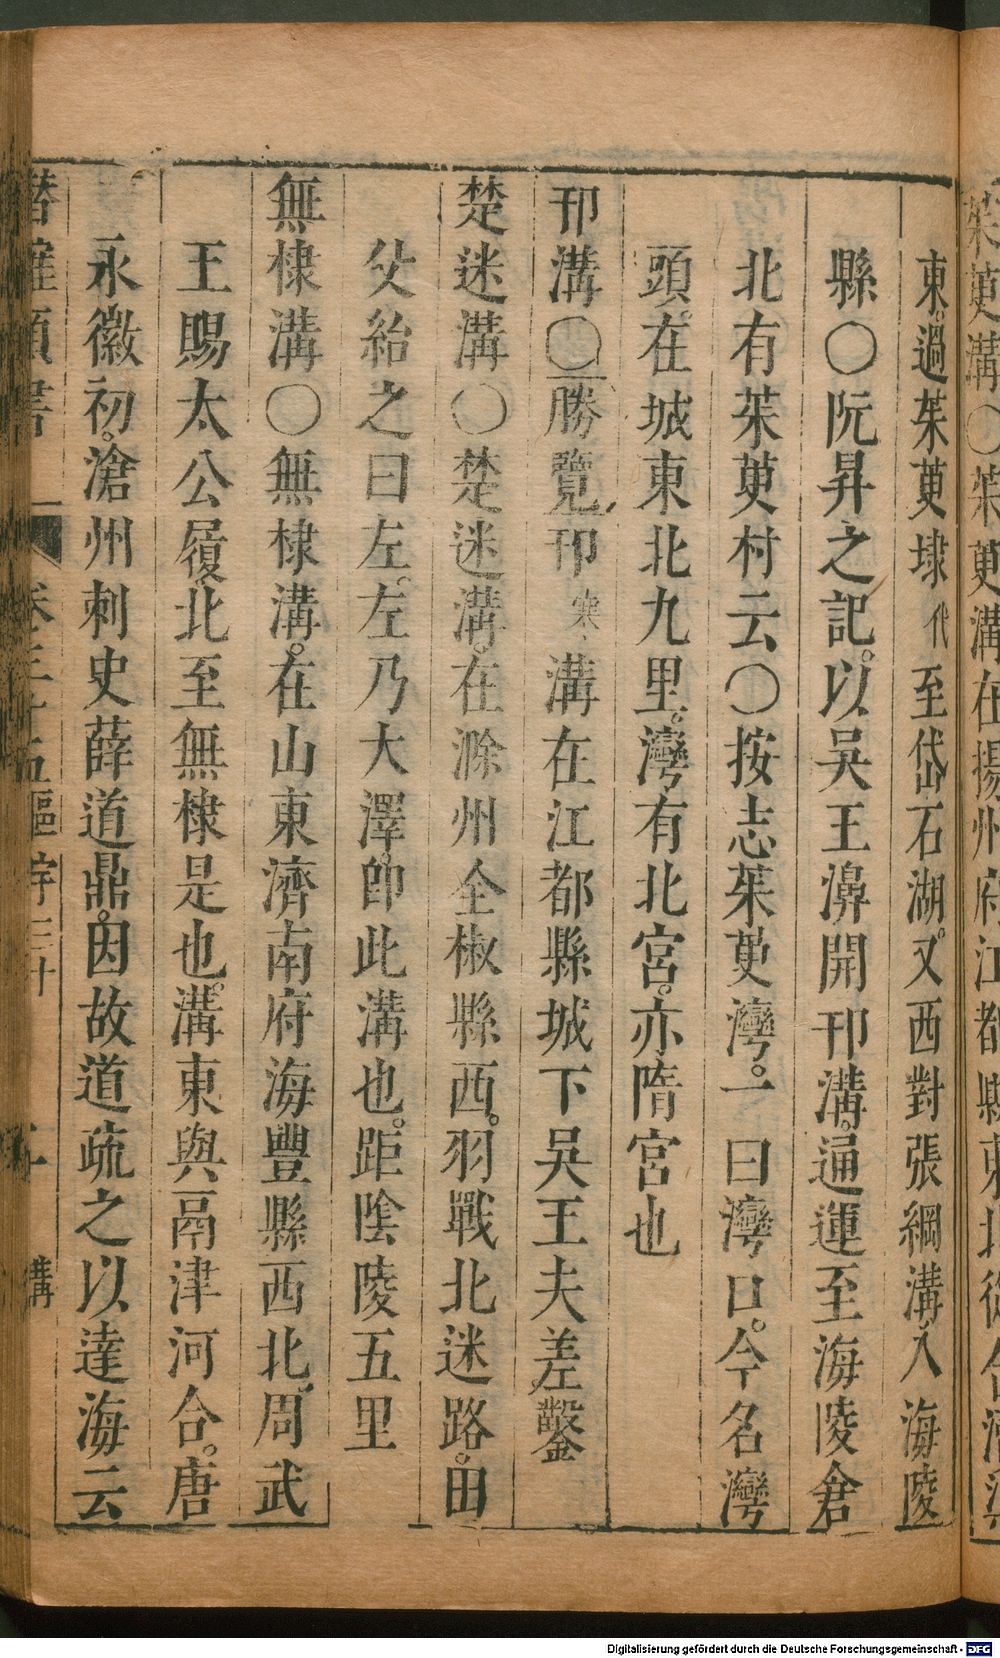 茱萸溝○茱萸溝在揚州府江都縣東北從合瀆渠
東過茱萸埭代至岱石湖又西對張綱溝入海陵
縣○阮昇之記以吳王濞開邗溝通運至海陵倉
北有茱萸村云○按志茱萸灣一曰灣口今名灣
頭在城東北九里灣有北宮亦隋宮也
邗溝○勝覽邗寒溝在江都縣城下吳王夫差鑿
楚迷溝○楚迷溝在滁州全椒縣西羽戰北迷路田
父紿之曰左左乃大澤卽此溝也距陰陵五里
無棣溝○無棣溝在山東濟南府海豐縣西北周武
王賜太公履北至無棣是也溝東與鬲津河合唐
永徽初滄州刺史薛道鼎因故道疏之以達海云
潛確類書 卷三十五區宇三十 溝
Digitalisierung gefördert durch die Deutsche Forschungsgemeinschaft - DFG